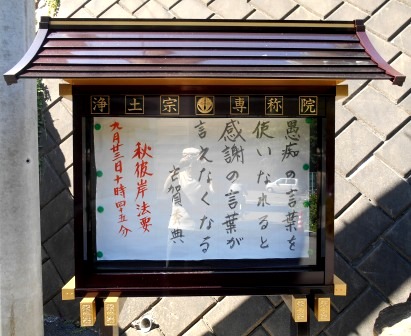 浄土宗 専称院
愚痴の言葉を
使いなれると
感謝の言葉が
言えなくなる
古賀 典
秋彼岸法要
九月廿三日十時四十五分